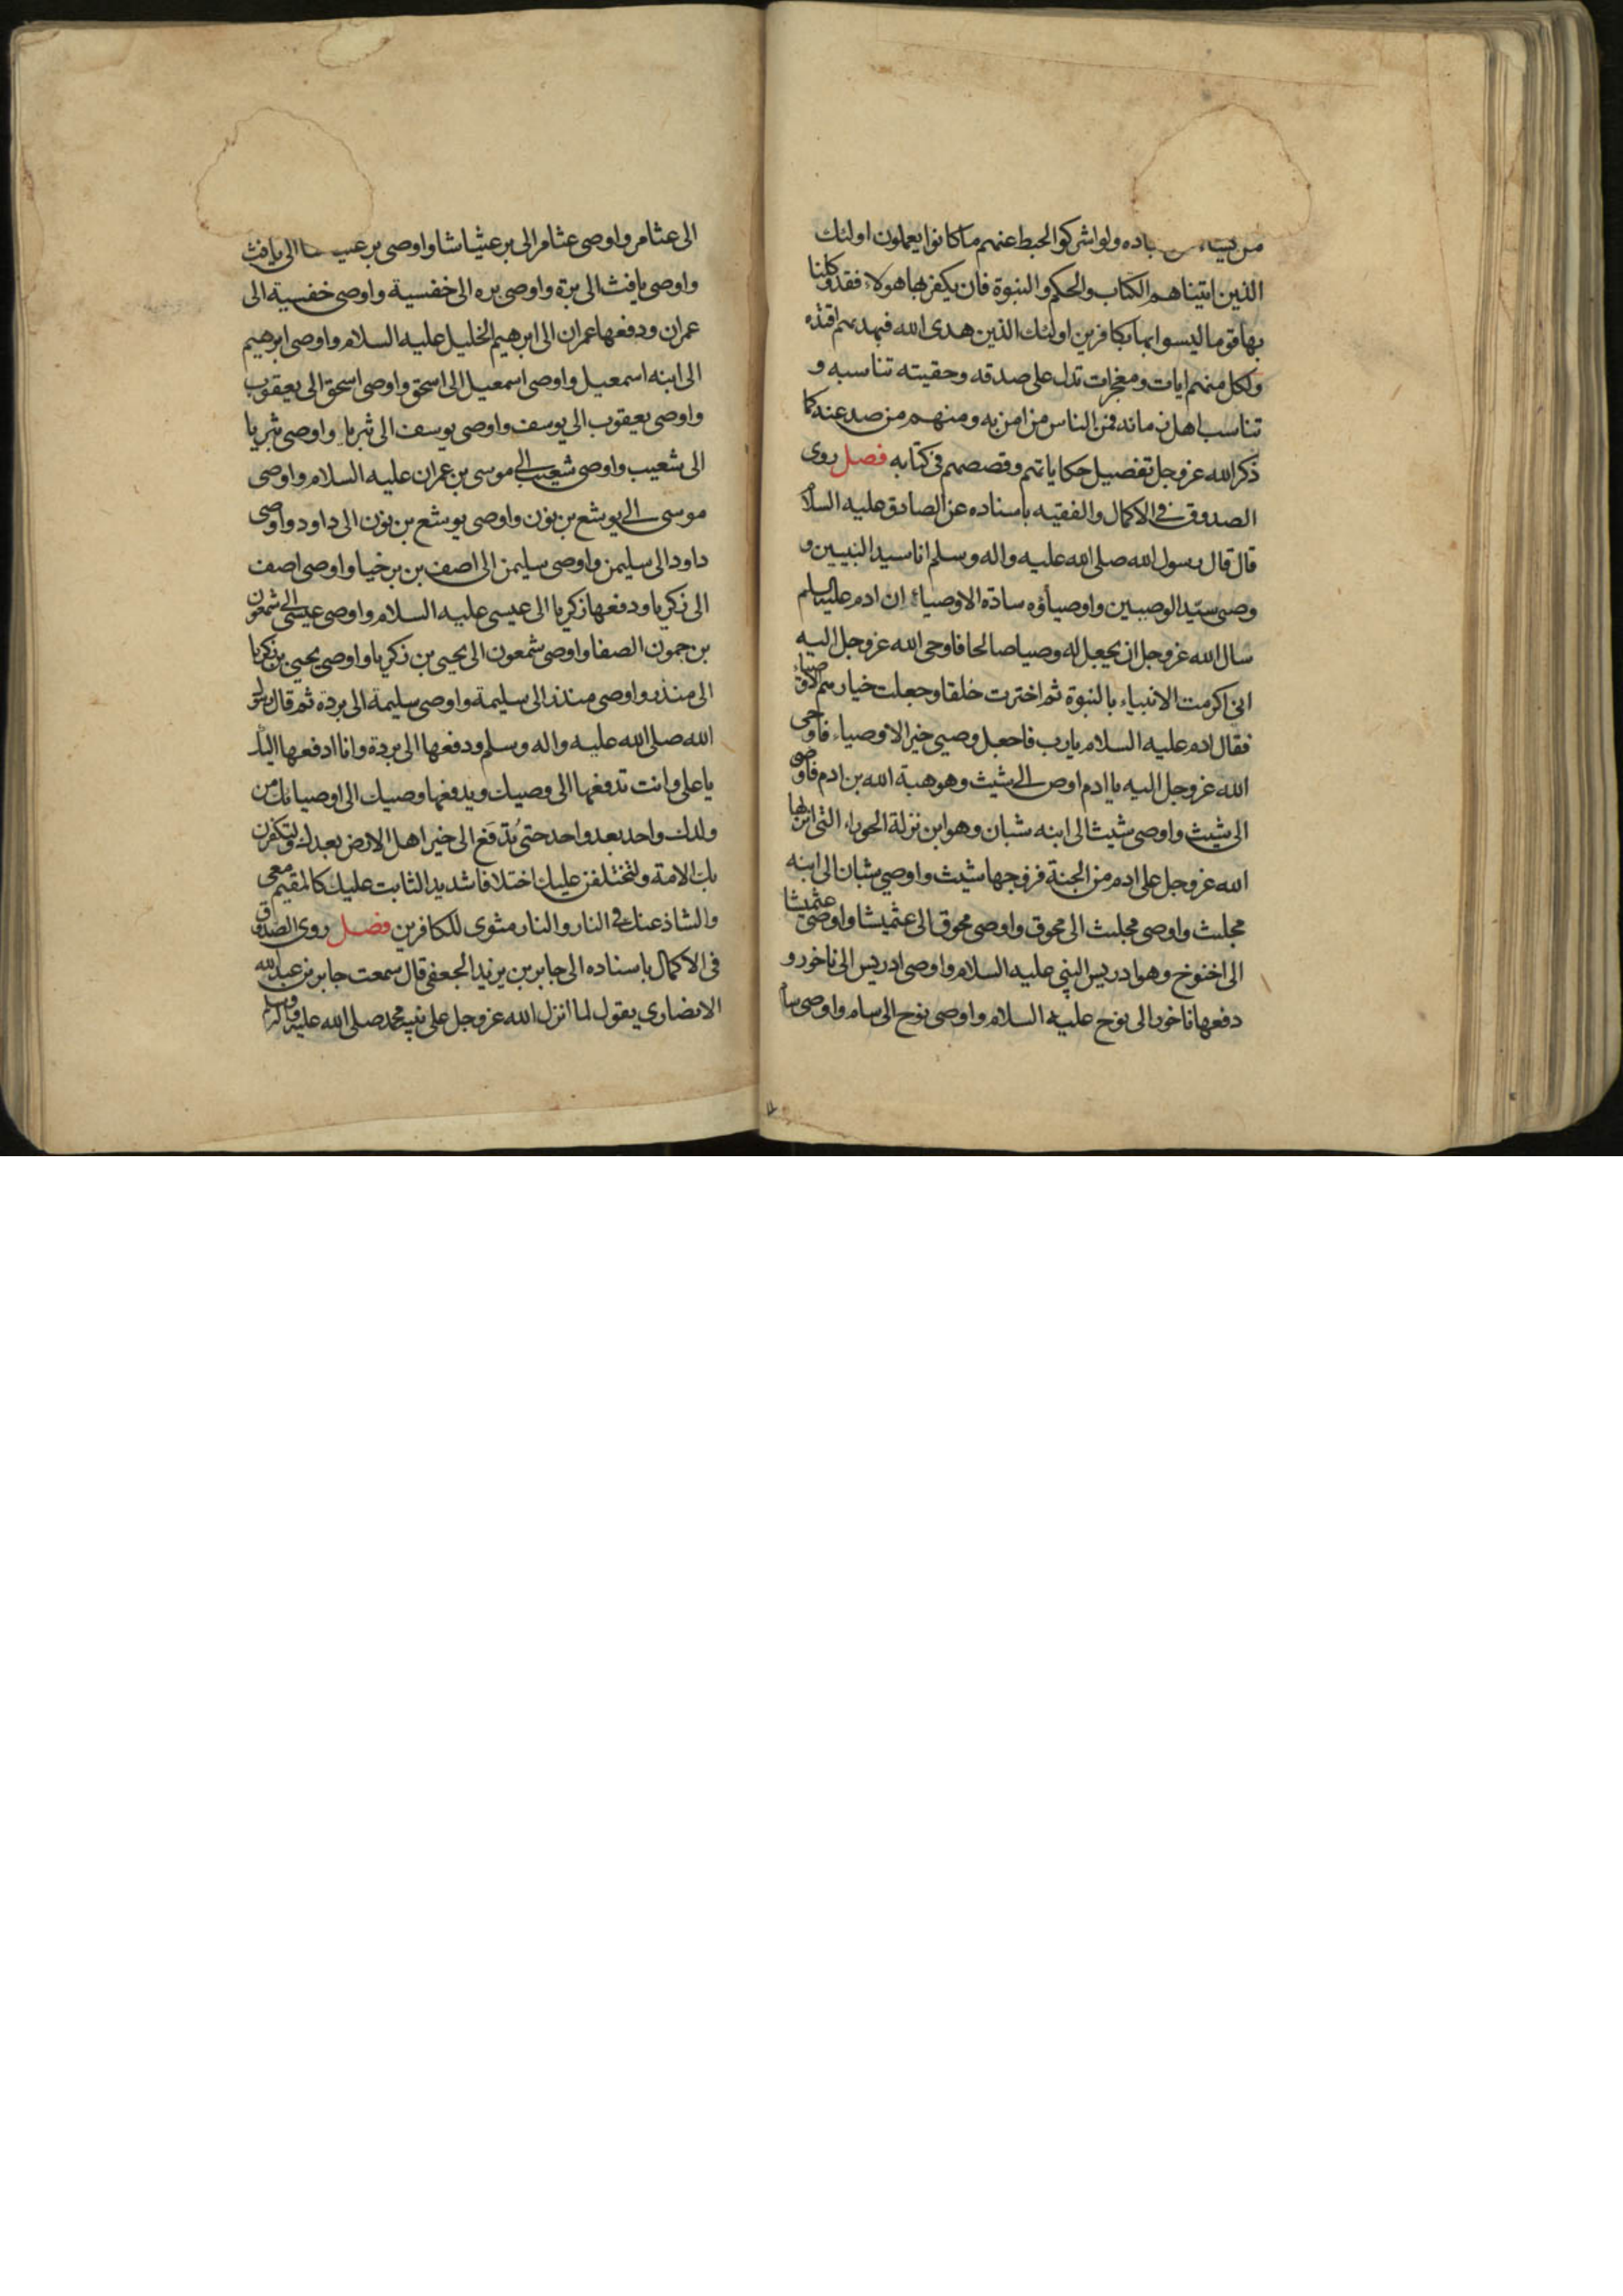 من يشاء من عباده ولو اشركوا لحبط عنهم ما كانوا يعملون اولئك
الذين اتيناهم الكتاب والحكم والنبوة فان يكفر بها هولاء فقد وكلنا
بها قوما ليسوا بها بكافرين اولئك الذين هدى الله فبهديهم اقتده
ولكل منهم ايات ومعجزات تدل على صدقه وحقيته تناسبه و
تناسب اهل زمانه فمن الناس من امن به ومنهم من صد عنه كما
ذكر الله عز وجل تفصيل حكاياتهم وقصصهم في كتابه فصل روى
الصدوق في الاكمال والفقيه باسناده عن الصادق عليه السلام
قال قال رسول الله صلى الله عليه واله وسلم انا سيد النبيين و
وصيى سيّد الوصيين واوصياؤه سادة الاوصياء ان ادم عليه السلم
سال الله عز وجل ان يجعل له وصيا صالحا فاوحى الله عز وجل اليه
اني اكرمت الانبياء بالنبوة ثم اخترت خلقا وجعلت خيارهم الاوصياء
فقال ادم عليه السلام يا رب فاجعل وصيي خير الاوصياء فاوحى
الله عز وجل اليه يا ادم اوص الى شيث وهو هبة الله بن ادم فاوصى
الى شيث واوصى شيث الى ابنه شبان وهو ابن نزلة الحوراء التى انزلها
الله عز وجل على ادم من الجنة فزوجها شيث واوصى شبان الى ابنه
مجلث واوصى مجلث الى محوق واوصى محوق الى عثميشا واوصى عثميشا
الى اخنوخ وهو ادريس النبي عليه السلام واوصى ادريس الى ناخور و
دفعها ناخور الى نوح عليه السلام واوصى نوح الى سام واوصى سام
الى عثامر واوصى عثامر الى برعيثاشا واوصى برعيثاشا الى يافث
واوصى يافث الى برة واوصى بره الى خفسية واوصى خفسية الى
عمران ودفعها عمران الى ابرهيم الخليل عليه السلام واوصى ابرهيم
الى ابنه اسمعيل واوصى اسمعيل الى اسحق واوصى اسحق الى يعقوب
واوصى يعقوب الى يوسف واوصى يوسف الى ثبريا واوصى ثبريا
الى شعيب واوصى شعيب الى موسى بن عمران عليه السلام واوصى
موسى الى يوشع بن نون واوصى يوشع بن نون الى داود واوصى
داود الى سليمن واوصى سليمن الى اصف بن برخيا واوصى اصف
الى زكريا ودفعها زكريا الى عيسى عليه السلام واوصى عيسى الى شمعون
بن حمون الصفا واوصى شمعون الى يحيى بن زكريا واوصى يحيى بن زكريا
الى منذر واوصى منذر الى سليمة واوصى سليمة الى بردة ثم قال رسول
الله صلى الله عليه واله وسلم ودفعها الى بردة وانا ادفعها اليك
يا على وانت تدفعها الى وصيك ويدفعها وصيك الى اوصيائك من
ولدك واحد بعد واحد حتى تُدفَع الى خير اهل الارض بعدك ولتكفرن
بك الامة ولتختلفن عليك اختلافا شديدا الثابت عليك كالمقيم معى
والشاذ عنك في النار والنار مثوى للكافرين فصل روى الصدوق
في الاكمال باسناده الى جابر بن يزيد الجعفى قال سمعت جابر بن عبد الله
الانصارى يقول لما انزل الله عز وجل على نبيه محمد صلى الله عليه واله وسلم